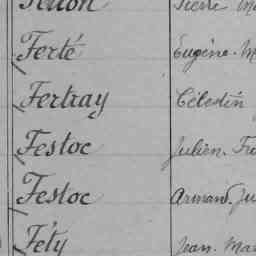 Ferté Eugène. M
Fertray Célestin
Festoc Julien. Fr
Festoc Armand. Ju
Féty Jean. Mar